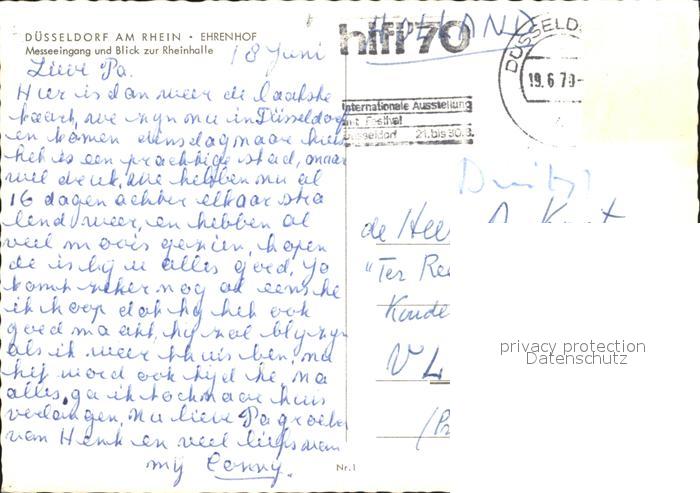 DÜSSELDORF AM RHEIN • EHRENHOF
Messeeingang und Blick zur Rheinhalle
18 Juni
Lieve Pa.
Hier is dan weer de laatste
kaart, we zyn nu in Düsseldorf
en komen dinsdag naar huis
het is een prachtige stad, maar
wel druk, we hebben nu al
16 dagen achter elkaar stra
lend weer, en hebben al
veel moois gezien, hopen
de is by u alles goed, Jo
komt zeker nog al eens he
ik hoop dat hy het ook
goed maakt, hy zal bly zyn
als ik weer thuis ben, nu
het word ook tyd he, na
alles, ga ik toch naar huis
verlangen. Nu lieve Pa groeten
van Henk en veel liefs van
my Conny.
HOLLAND
hifi'70
Internationale Ausstellung
mit Festival
Düsseldorf 21. bis 30.8.
DÜSSELD
19.6.70-
de Hee A. K
"Ter Re
Kinde
VL
(P
privacy protection
Datenschutz
Nr.1